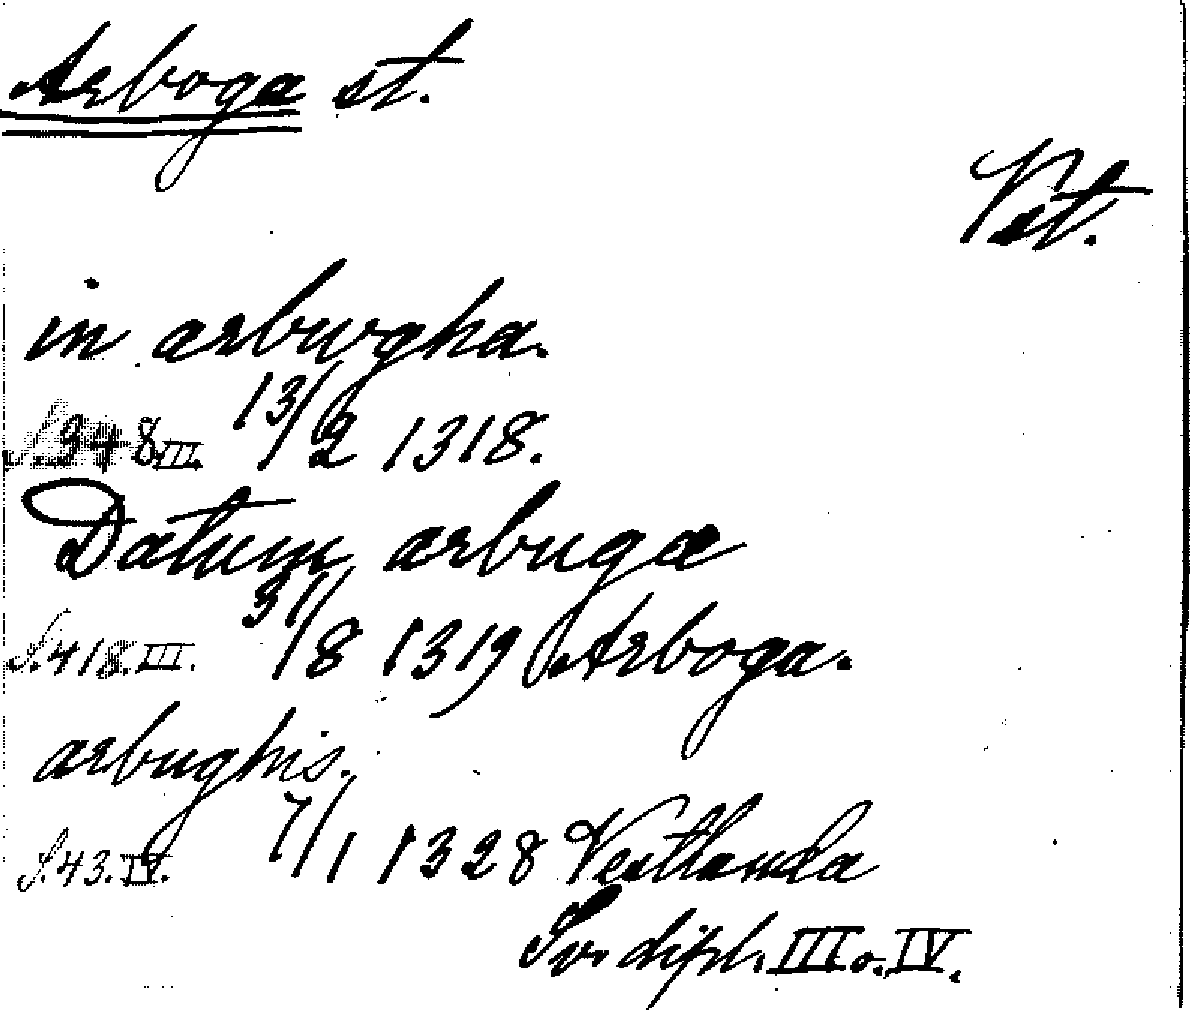 Arboga st.
Vst.
in arburgha.
S. 348 III. 13/2 1318.
Datum arbuga
S. 418. III. 31/8 1319 Arboga.
arbughis.
S. 43. IV. 7/1 1328 Vestlanda
Sv. dipl. III o. IV.